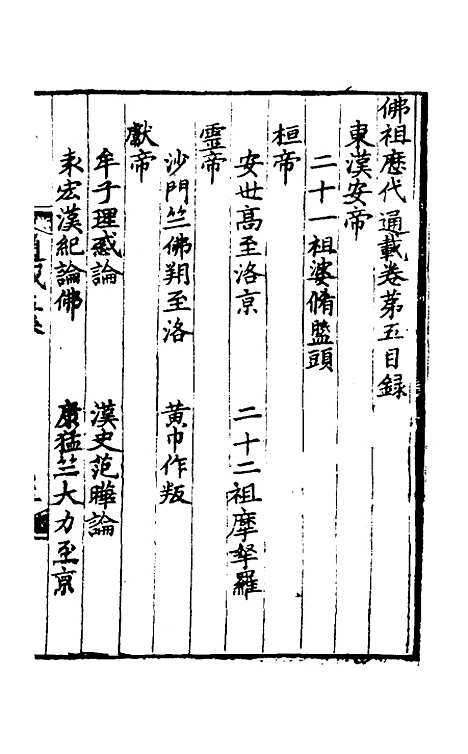 佛祖歷代通載卷第五目録
東漢安帝
二十一祖婆脩盤頭
桓帝
安世髙至洛京　二十二祖摩拏羅
靈帝
沙門竺佛朔至洛　黄巾作叛
獻帝
牟子理惑論　漢史范曄論
袁宏漢紀論佛　康猛竺大力至京